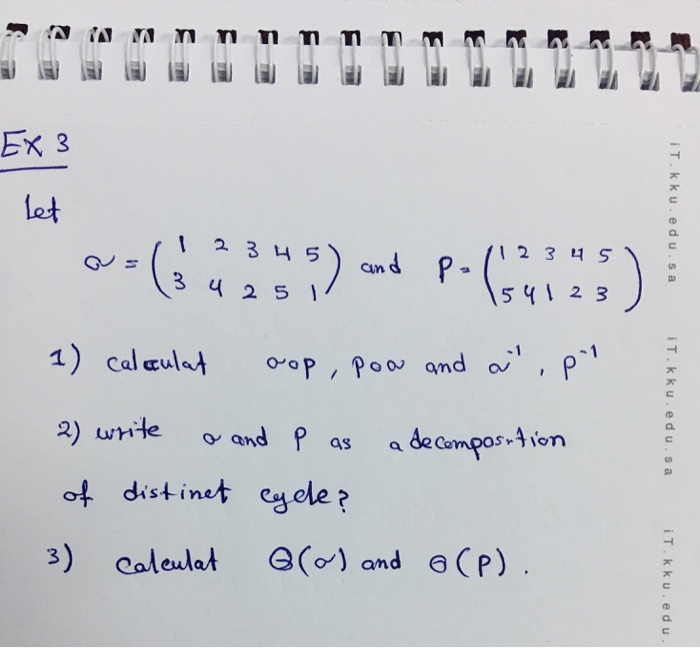 Ex 3
Let
σ = ( 1 2 3 4 5 ) and ρ = ( 1 2 3 4 5 )
3 4 2 5 1 5 4 1 2 3
1) calculat σoρ, ρoσ and σ⁻¹, ρ⁻¹
2) write σ and ρ as a decomposition
of distinct cycle?
3) calculat Θ(σ) and Θ(ρ).
iT.kku.edu.sa
iT.kku.edu.sa
iT.kku.edu.